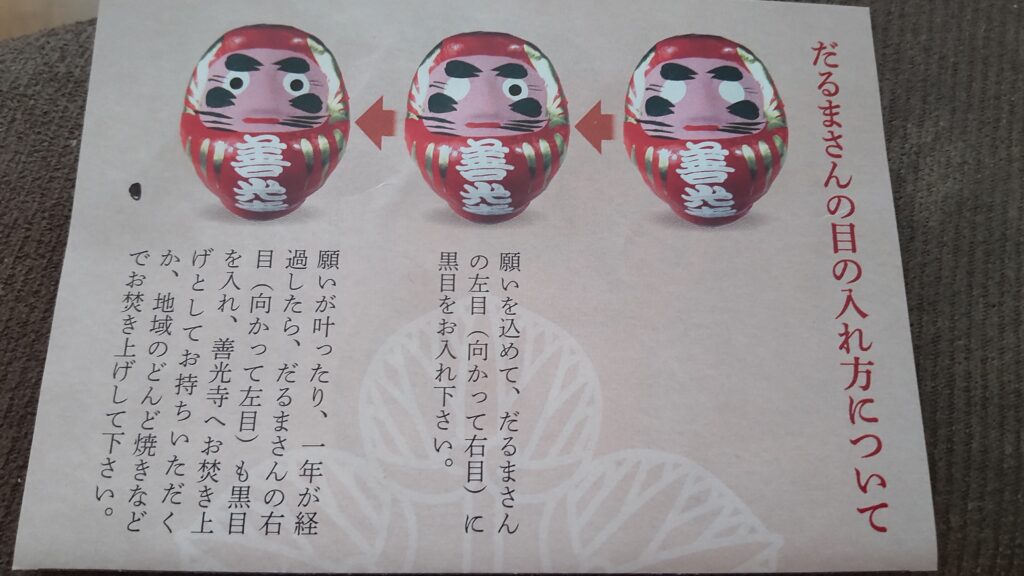 だるまさんの目の入れ方について
善光寺
善光寺
善光寺
願いを込めて、だるまさん
の左目（向かって右目）に
黒目をお入れ下さい。
願いが叶ったり、一年が経
過したら、だるまさんの右
目（向かって左目）も黒目
を入れ、善光寺へお焚き上
げとしてお持ちいただく
か、地域のどんど焼きなど
でお焚き上げして下さい。